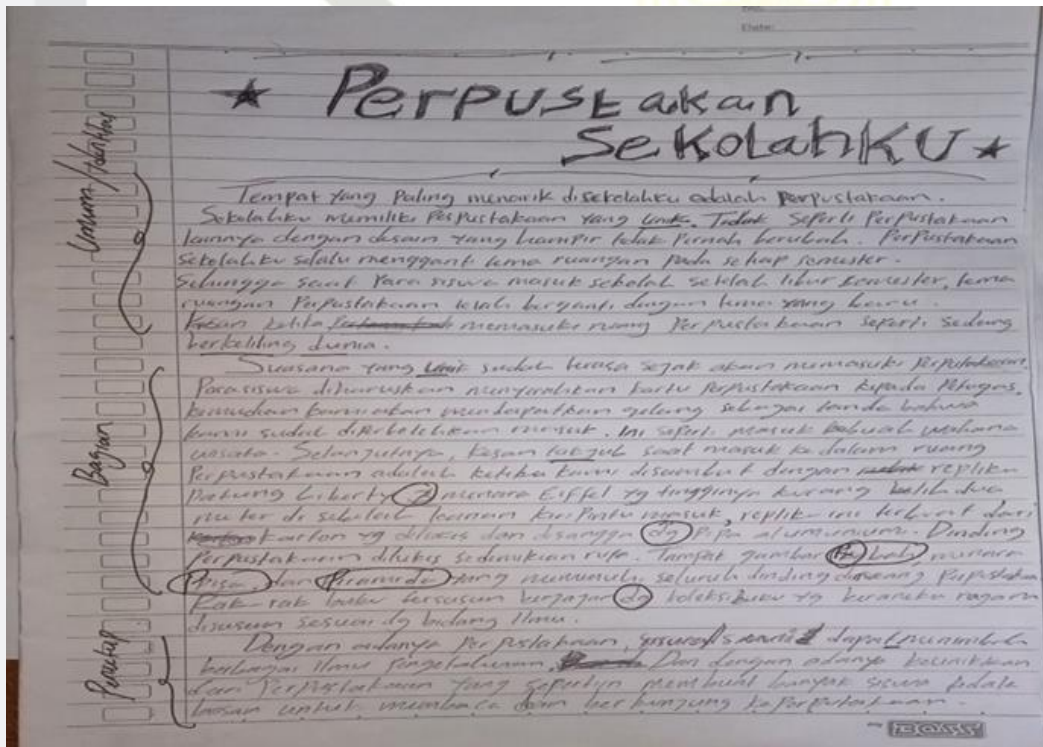 Date:
★ Perpustakan
Sekolahku ★
Umum/
Tempat yang Paling menarik disekolahku adalah Perpustakaan.
Sekolahku memiliki Perpustakaan yang Unik. Tidak Seperti Perpustakaan
lainnya dengan desain yang hampir tidak Pernah berubah. Perpustakaan
Sekolahku selalu mengganti tema ruangan pada setiap semester.
Sehingga saat Para siswa masuk sekolah setelah libur semester, tema
ruangan Perpustakaan telah berganti dengan tema yang baru.
Kesan ketika memasuki ruang Perpustakaan seperti sedang
berkeliling dunia.
Bagian
Suasana yang Unik sudah terasa sejak akan memasuki Perpustakaan.
Para siswa diharuskan menyerahkan kartu Perpustakaan kepada Petugas,
kemudian kami akan mendapatkan gelang sebagai tanda bahwa
kami sudah diperbolehkan masuk. Ini seperti masuk wahana
wisata. Selanjutnya, kesan takjub saat masuk ke dalam ruang
Perpustakaan adalah ketika kami disambut dengan replika
Patung Liberty menara Eiffel yg tingginya kurang lebih dua
meter di sebelah kanan kiri Pintu masuk, replika ini terbuat dari
karton yg dilukis dan disangga dg Pipa aluminium. Dinding
Perpustakaan dilukis sedemikian rupa. Tampak gambar menara
Phisa dan Piramida yang memenuhi seluruh dinding Perpustakaan
Rak-rak buku tersusun berjajar dg koleksi buku yg beraneka ragam
disusun sesuai dg bidang Ilmu.
Penutup
Dengan adanya Perpustakaan, dapat menimbah
berbagai Ilmu Pengetahuan. Dan dengan adanya keunikan
dari Perpustakaan yang membuat banyak siswa tidak
bosan untuk membaca dan berkunjung ke Perpustakaan.
BOSS